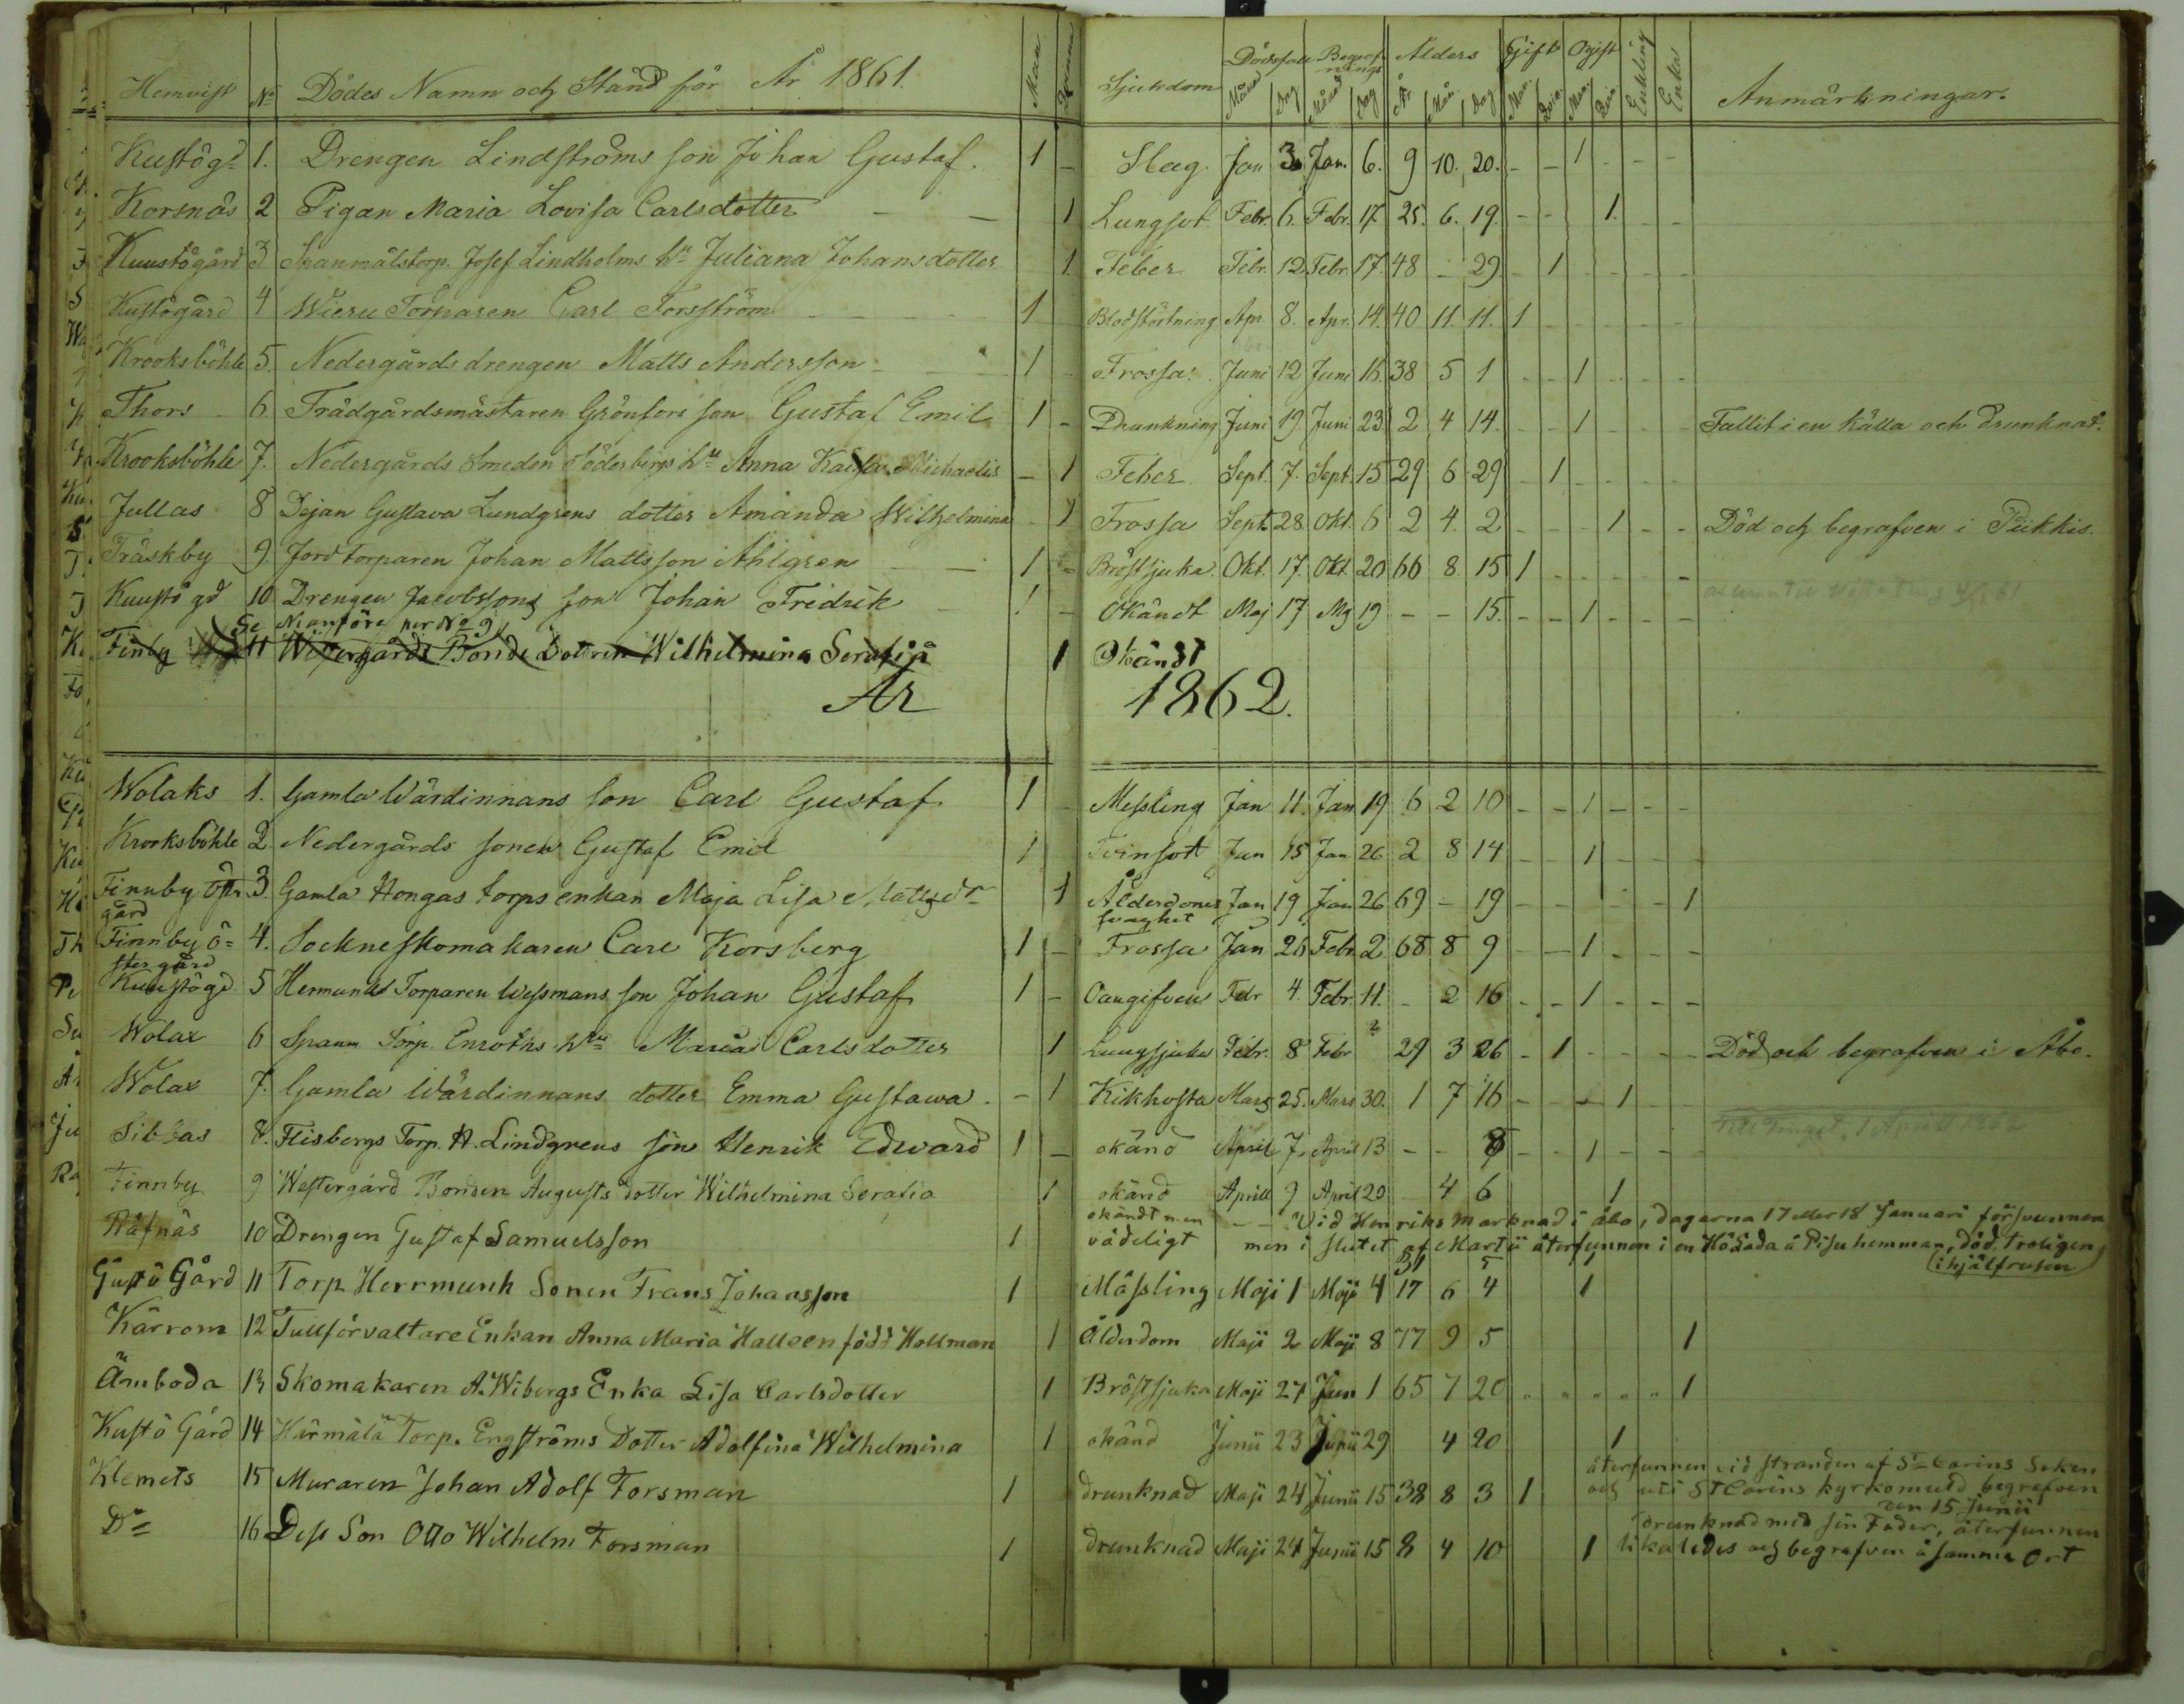 Hemvist No Dödes Namn och Stånd för År 1861. Man Sjukdom Dödsfall Begrafnings Ålders Gift Ogift Enkling Enka Anmärkningar.
Månad Dag Månad Dag År Mån Dag Man Qvin. Man. Qvin
Kustög: 1. Drengen Lindströms son Johan Gustaf. 1 - Slag. Jan 3 Jan. 6. 9 10. 20. - - 1 - - -
Korsnäs 2 Pigan Maria Lovisa Carlsdotter - - 1 Lungsot. Febr. 6. Febr. 17 25. 6. 19. - - 1. - -
Kuustögård 3 Spanmålstorp. Josef Lindholms hu Juliana Johansdotter 1 Feber Febr. 12. Febr. 17. 48 - 29. - 1 - - - -
Kustögård 4 Wieru Torparen Carl Forsström 1 Blodstörtning Apr 8. Apr. 14. 40 11. 11. 1 - - - - -
Krooksböhle 5. Nedergårds drengen Matts Andersson 1 Frossa. Juni 12 Juni 16. 38 5 1 - - 1 - - -
Thors 6 Trädgårdsmästaren Grönfors son Gustaf Emil 1 - Drunkning Juni 19 Juni 23 2 4 14. - - 1 - - - Fallit i en källa och drunknat.
Krooksböhle 7. Nedergårds Smeden Söderbergs hu Anna Kaisa Michaelis - 1 Feber Sept. 7. Sept. 15 29 6 29 - 1 - - - -
Jullas 8 Pejan Gustava Lundgrens dotter Amanda Wilhelmina - 1 Frossa Sept. 28 Okt. 6 2 4. 2 - - - 1 - - Död och begrafven i Piikkis.
Träskby 9. Jordtorparen Johan Mattsson Ahlgren 1 - Bröstsjuka. Okt. 17. Okt. 20 66 8. 15 1 - - - - -
Kuustö gd 10 Drengen Jacobssons son Johan Fridrik 1 - Okändt Maj 17 Mj 19 - - 15. - - 1 - - -
Se No 9
Finby 11 Westergårds Bonde Dottren Wilhelmina Serafia 1 Okändt
År 1862.
Wolaks 1. Gamla Wärdinnans son Carl Gustaf 1 - Messling Jan 11. Jan 19 6 2 10 - - 1 - - -
Krooksböhle 2 Nedergårds sonen Gustaf Emil 1 Tvinsott Jan 15 Jan 26 2 8 14 - - 1 - - -
Finnby Östr 3. Gamla Hongas torpsenkan Maja Lisa Mattsdr 1 Ålderdoms Jan 19 Jan 26 69 - 19 - - - - - 1
gård svaghet
Finnby Ö= 4. Sockneskomakaren Carl Korsberg 1 - Frossa Jan 26 Febr. 2 68 8 9 - - 1 - - -
stergård
Kuustögd 5 Hermunds Torparen Wessmans son Johan Gustaf 1 - Oangifven Febr 4. Febr. 11. - 2 16 - - 1 - - -
Wolax 6 Spanm Torp. Enroths hu Maria Carlsdotter 1 Lungsjuka Febr. 8 Febr ? 29 3 26 - 1 - - - - Död och begrafven i Åbo.
Wolax 7. Gamla Wärdinnans dotter Emma Gustawa. - 1 Kikhosta Mars 25. Mars 30. 1 7 16 - - - 1 - -
Sibbas 8. Flisbergs Torp. A. Lindgrens son Henrik Edward 1 - okänd April 7. April 13 - - 8 - - 1 - - -
Finnby 9 Westergård Bonden Augusts dotter Wilhelmina Serafia 1 okänd Aprill 9 April 20 - 4 6 1
Räfnäs 10 Drengen Gustaf Samuelsson 1 okändt men - - Vid Henriks marknad i åbo, dagarna 17 eller 18 Januari försvunnen
vådeligt men i slutet af Martii återfunnen i en Hölada å Pisu hemman, död, troligen
ihjälfrusen
31 5
Gustö Gård 11 Torp Herrmunk Sonen Frans Johansson 1 Mässling Maji 1 Maji 4 17 6 4 1
Kärrom 12 Tullförvaltare Enkan Anna Maria Halleen född Hallman 1 Ålderdom Maji 2 Maji 8 77 9 5 1
Ämboda 13 Skomakaren A. Wibergs Enka Lisa Carlsdotter 1 Bröstsjuka Maji 27 Jun 1 65 7 20 1
Kustö Gård 14 Härmälä Torp. Engströms Dotter Adolfina Wilhelmina 1 okänd Junii 23 Junii 29 4 20 1
Klemets 15 Muraren Johan Adolf Forsman 1 drunknad Maji 24 Junii 15 38 8 3 1 återfunnen vid stranden af St Carins Soken
och uti St Carins kyrkomuld begrafven
den 15 Junii
Do 16 Dess Son Otto Wilhelm Forsman 1 drunknad Maji 24 Junii 15 8 4 10 1 drunknad med sin Fader, återfunnen
likaledes och begrafven å samma Ort